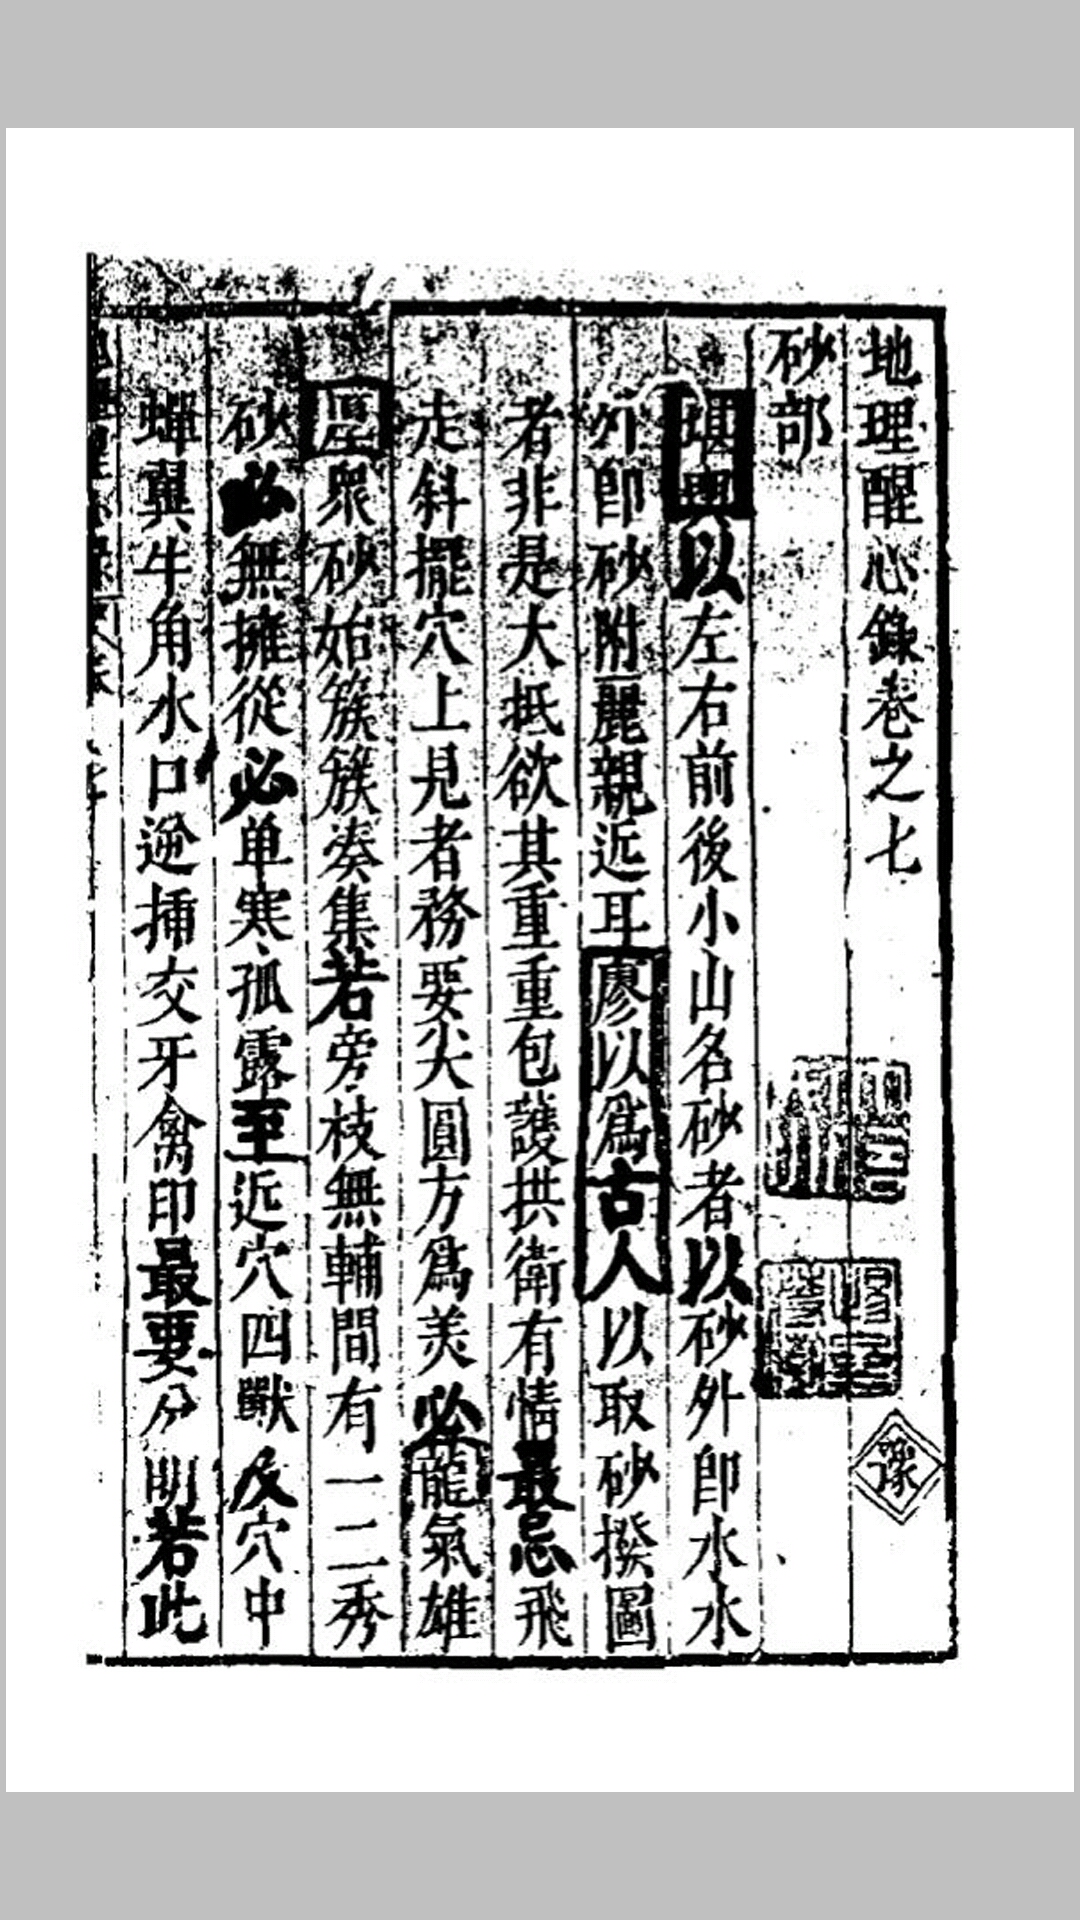 地理醒心錄卷之七
砂部
堪輿以左右前後小山名砂者以砂外即水水
外即砂附麗親近耳廖以爲古人以取砂撥圖
者非是大抵欲其重重包護拱衛有情最忌飛
走斜擺穴上見者務要尖圓方爲美必龍氣雄
厚衆砂始簇簇湊集若旁枝無輔間有一二秀
砂必無擁從必单寒孤露至近穴四獸及穴中
蟬翼牛角水口逆揷交牙禽印最要分明若此
豫